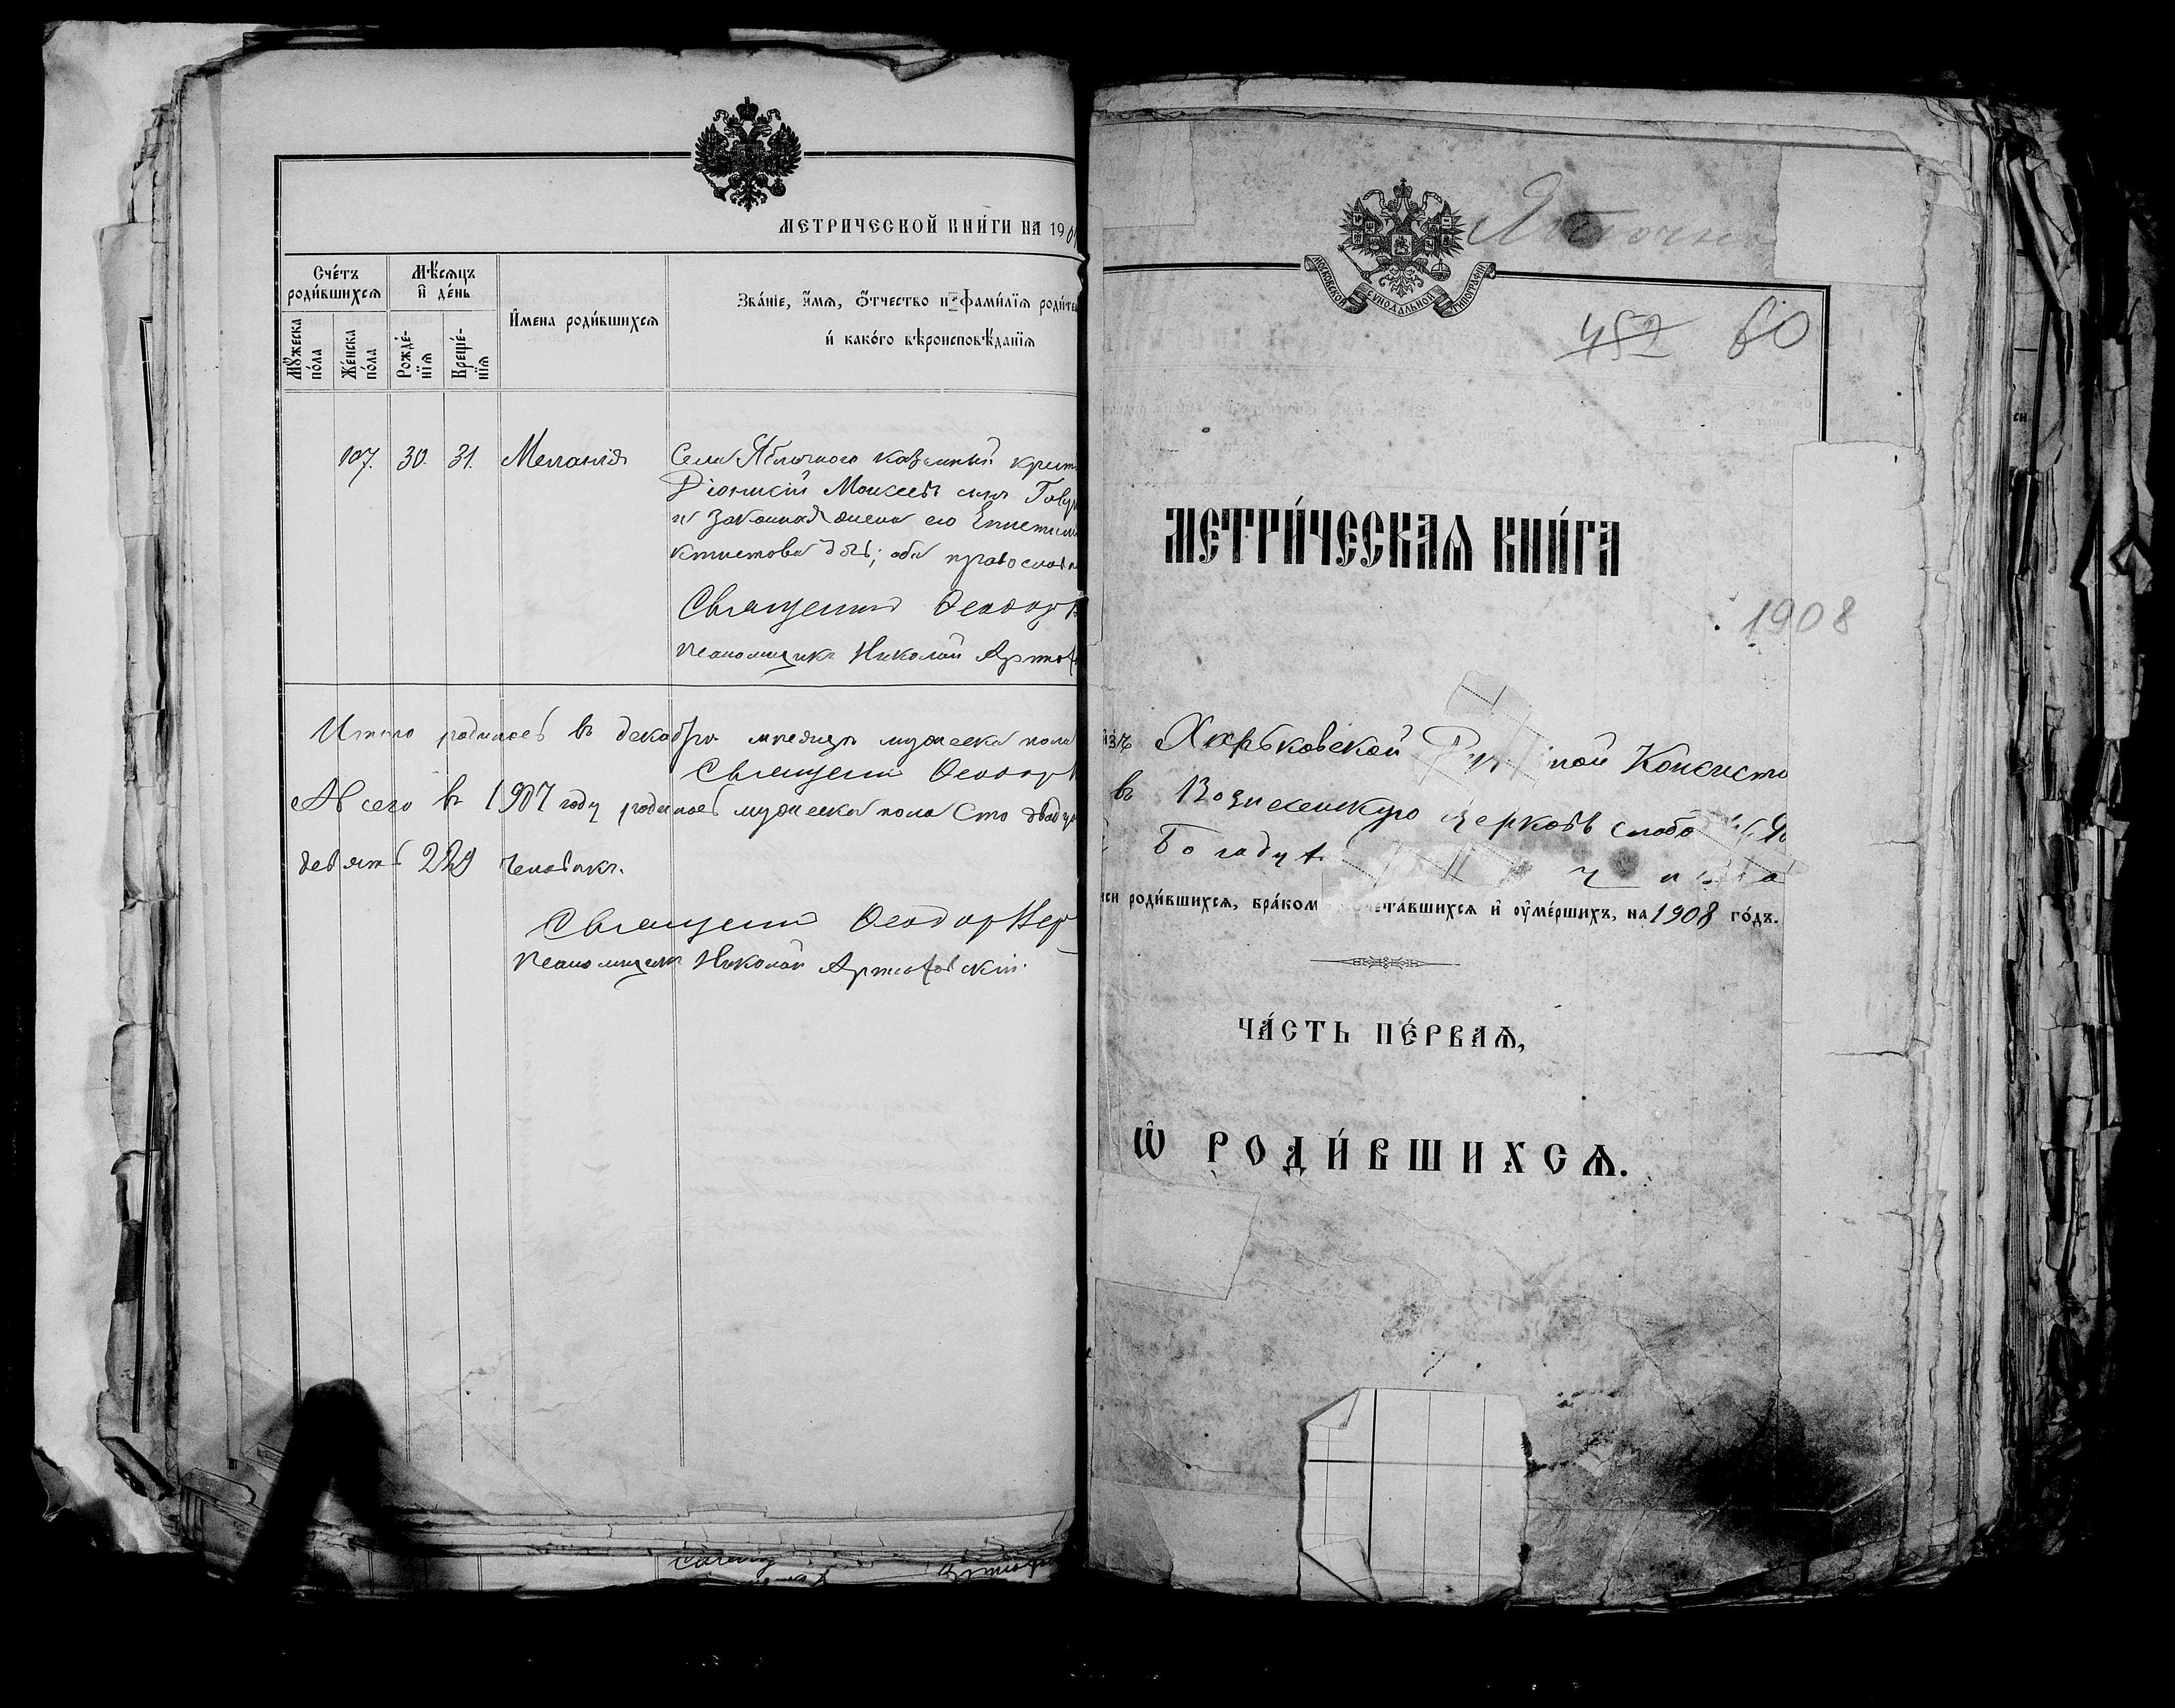 МЕТРИЧЕСКОЙ КНИ́ГИ НА 190
Сче́тъ роди́вшихсѧ
Мѣ́сѧцъ и҆ де́нь
И҆мена роди́вшихсѧ
Зва́нїе, и҆́мѧ, ѻ҆́тчество и҆ фами́лїѧ
и҆ како́го вѣроисповѣ́данїѧ
Мꙋ́жеска по́ла
Же́нска по́ла
Рожде́нїѧ
Креще́нїѧ
107. 30. 31. Меланія
Села Яблочнаго казенный
Діонисій Моисеевъ сынъ
и законная жена его
дочь; оба
Священникъ Ѳеодоръ
Псаломщикъ Николай
Итого родилось въ декабрѣ мѣсяцѣ мужеска пола
Священникъ Ѳеодоръ
А всего въ 1907 году родилось мужеска пола сто
девять 229 человѣкъ.
Священникъ Ѳеодоръ
Псаломщикъ Николай Артюховскій.
Яблочно
МОСКОВСКОЙ СѴНОДАЛЬНОЙ ТИПОГРАФІИ
452 60
МЕТРИ́ЧЕСКАѦ КНИ́ГА
1908
изъ Харьковской Консисто
въ Вознесенскую церковь слобо
Богодух
роди́вшихсѧ, бра́ком и҆ ѹ҆ме́ршихъ, на 1908 го́дъ.
ЧА́СТЬ ПЕ́РВАѦ,
Ѡ҆ РОДИ́ВШИХСѦ.